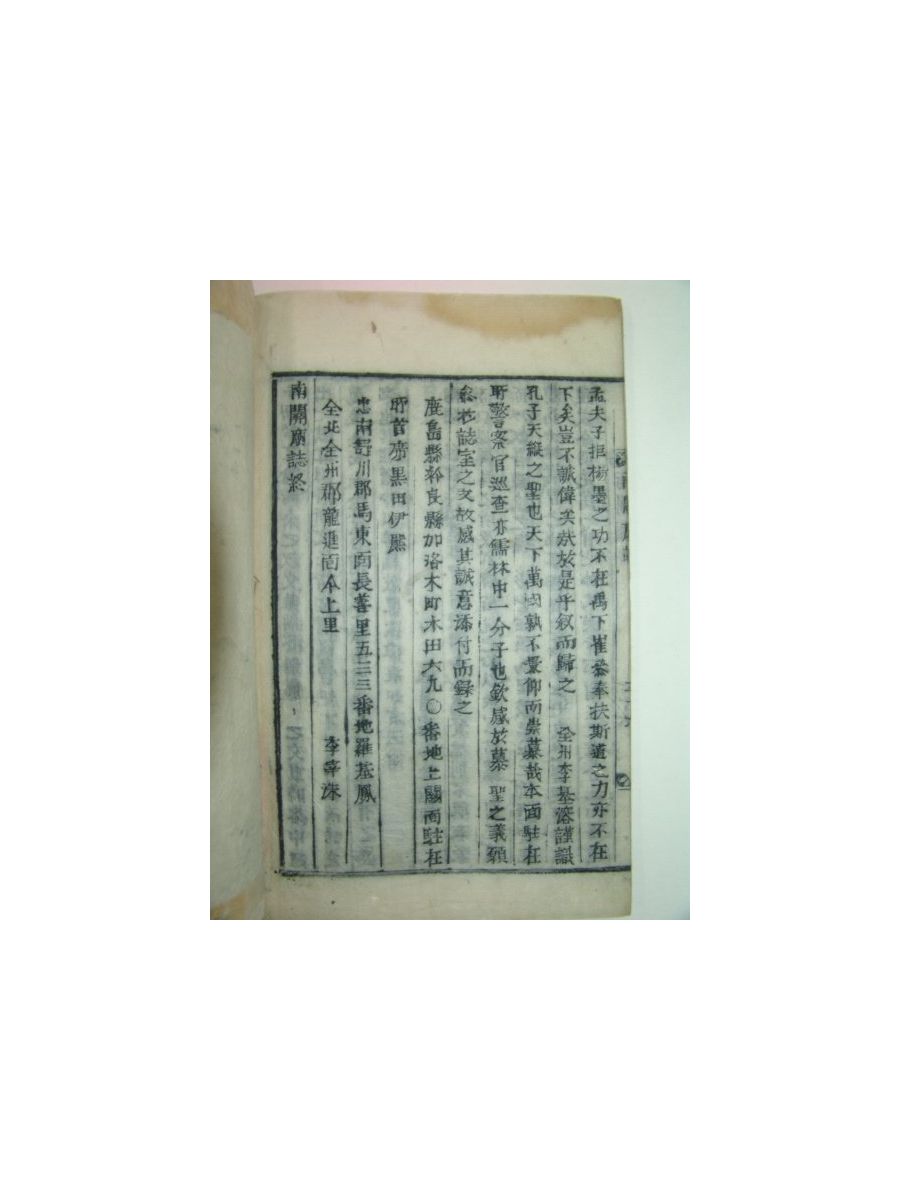 孟夫子拒楊墨之功不在禹下崔參奉扶斯道之力亦不在
下矣豈不誠偉矣哉於是乎叙而歸之 全州李基溶謹識
孔子天縱之聖也天下萬國孰不景仰而崇慕哉本面駐在
所警察官巡查亦儒林中一分子也欽感於慕 聖之義願
參於誌室之文故感其誠意添付而錄之
鹿島縣 良縣加洛木町木田六九〇番地上關面駐在
所首席黑田伊熊
忠南舒川郡馬東面長善里五三三番地羅基鳳
全北全州郡龍進面 上里 李 洙
南關廟誌終